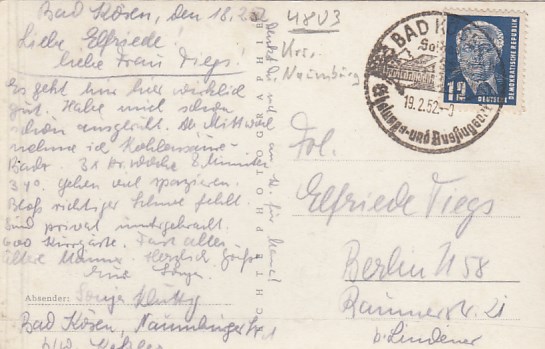 Bad Kösen, den 18.2.52
Liebe Elfriede!
liebe Frau Tiegs.
Es geht mir hier wirklich
gut. Habe mich schon
schön ausgeruht. Ab Mittwoch
nehme ich Kohlensäure-
Bäder. 8 Minuten
34°. gehen viel spazieren.
Bloß richtiger Schnee fehlt.
Sind privat untergebracht.
600 Kurgäste. Fast alles
ältere Männer. Herzlich grüßt
Eure Sonja.
Absender: Sonja
Bad Kösen, Naumburger Str. 1
b/w
4803
Krs.
Naumburg
ECHTE PHOTOGRAPHIE
BAD KÖSEN
19.2.52
DEUTSCHE
DEMOKRATISCHE REPUBLIK
12
Frl.
Elfriede Tiegs
Berlin N 58
Str. 21
b. Lindener